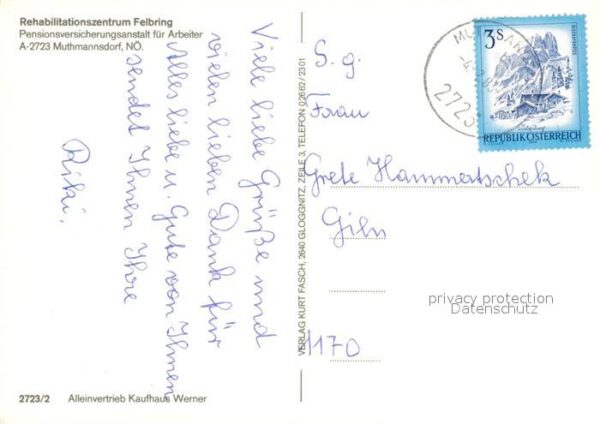 Rehabilitationszentrum Felbring
Pensionsversicherungsanstalt für Arbeiter
A-2723 Muthmannsdorf, NÖ.
Viele liebe Grüße und
vielen lieben Dank für
Alles liebe u. Gute von Ihnen
sendet Ihnen Ihre
Riki.
VERLAG KURT FASCH, 2640 GLOGGNITZ, ZEILE 3, TELEFON 02662/2301
S. g.
Frau
Grete Hammertschek
1170
3S
REPUBLIK ÖSTERREICH
2723
privacy protection
Datenschutz
2723/2 Alleinvertrieb Kaufhaus Werner